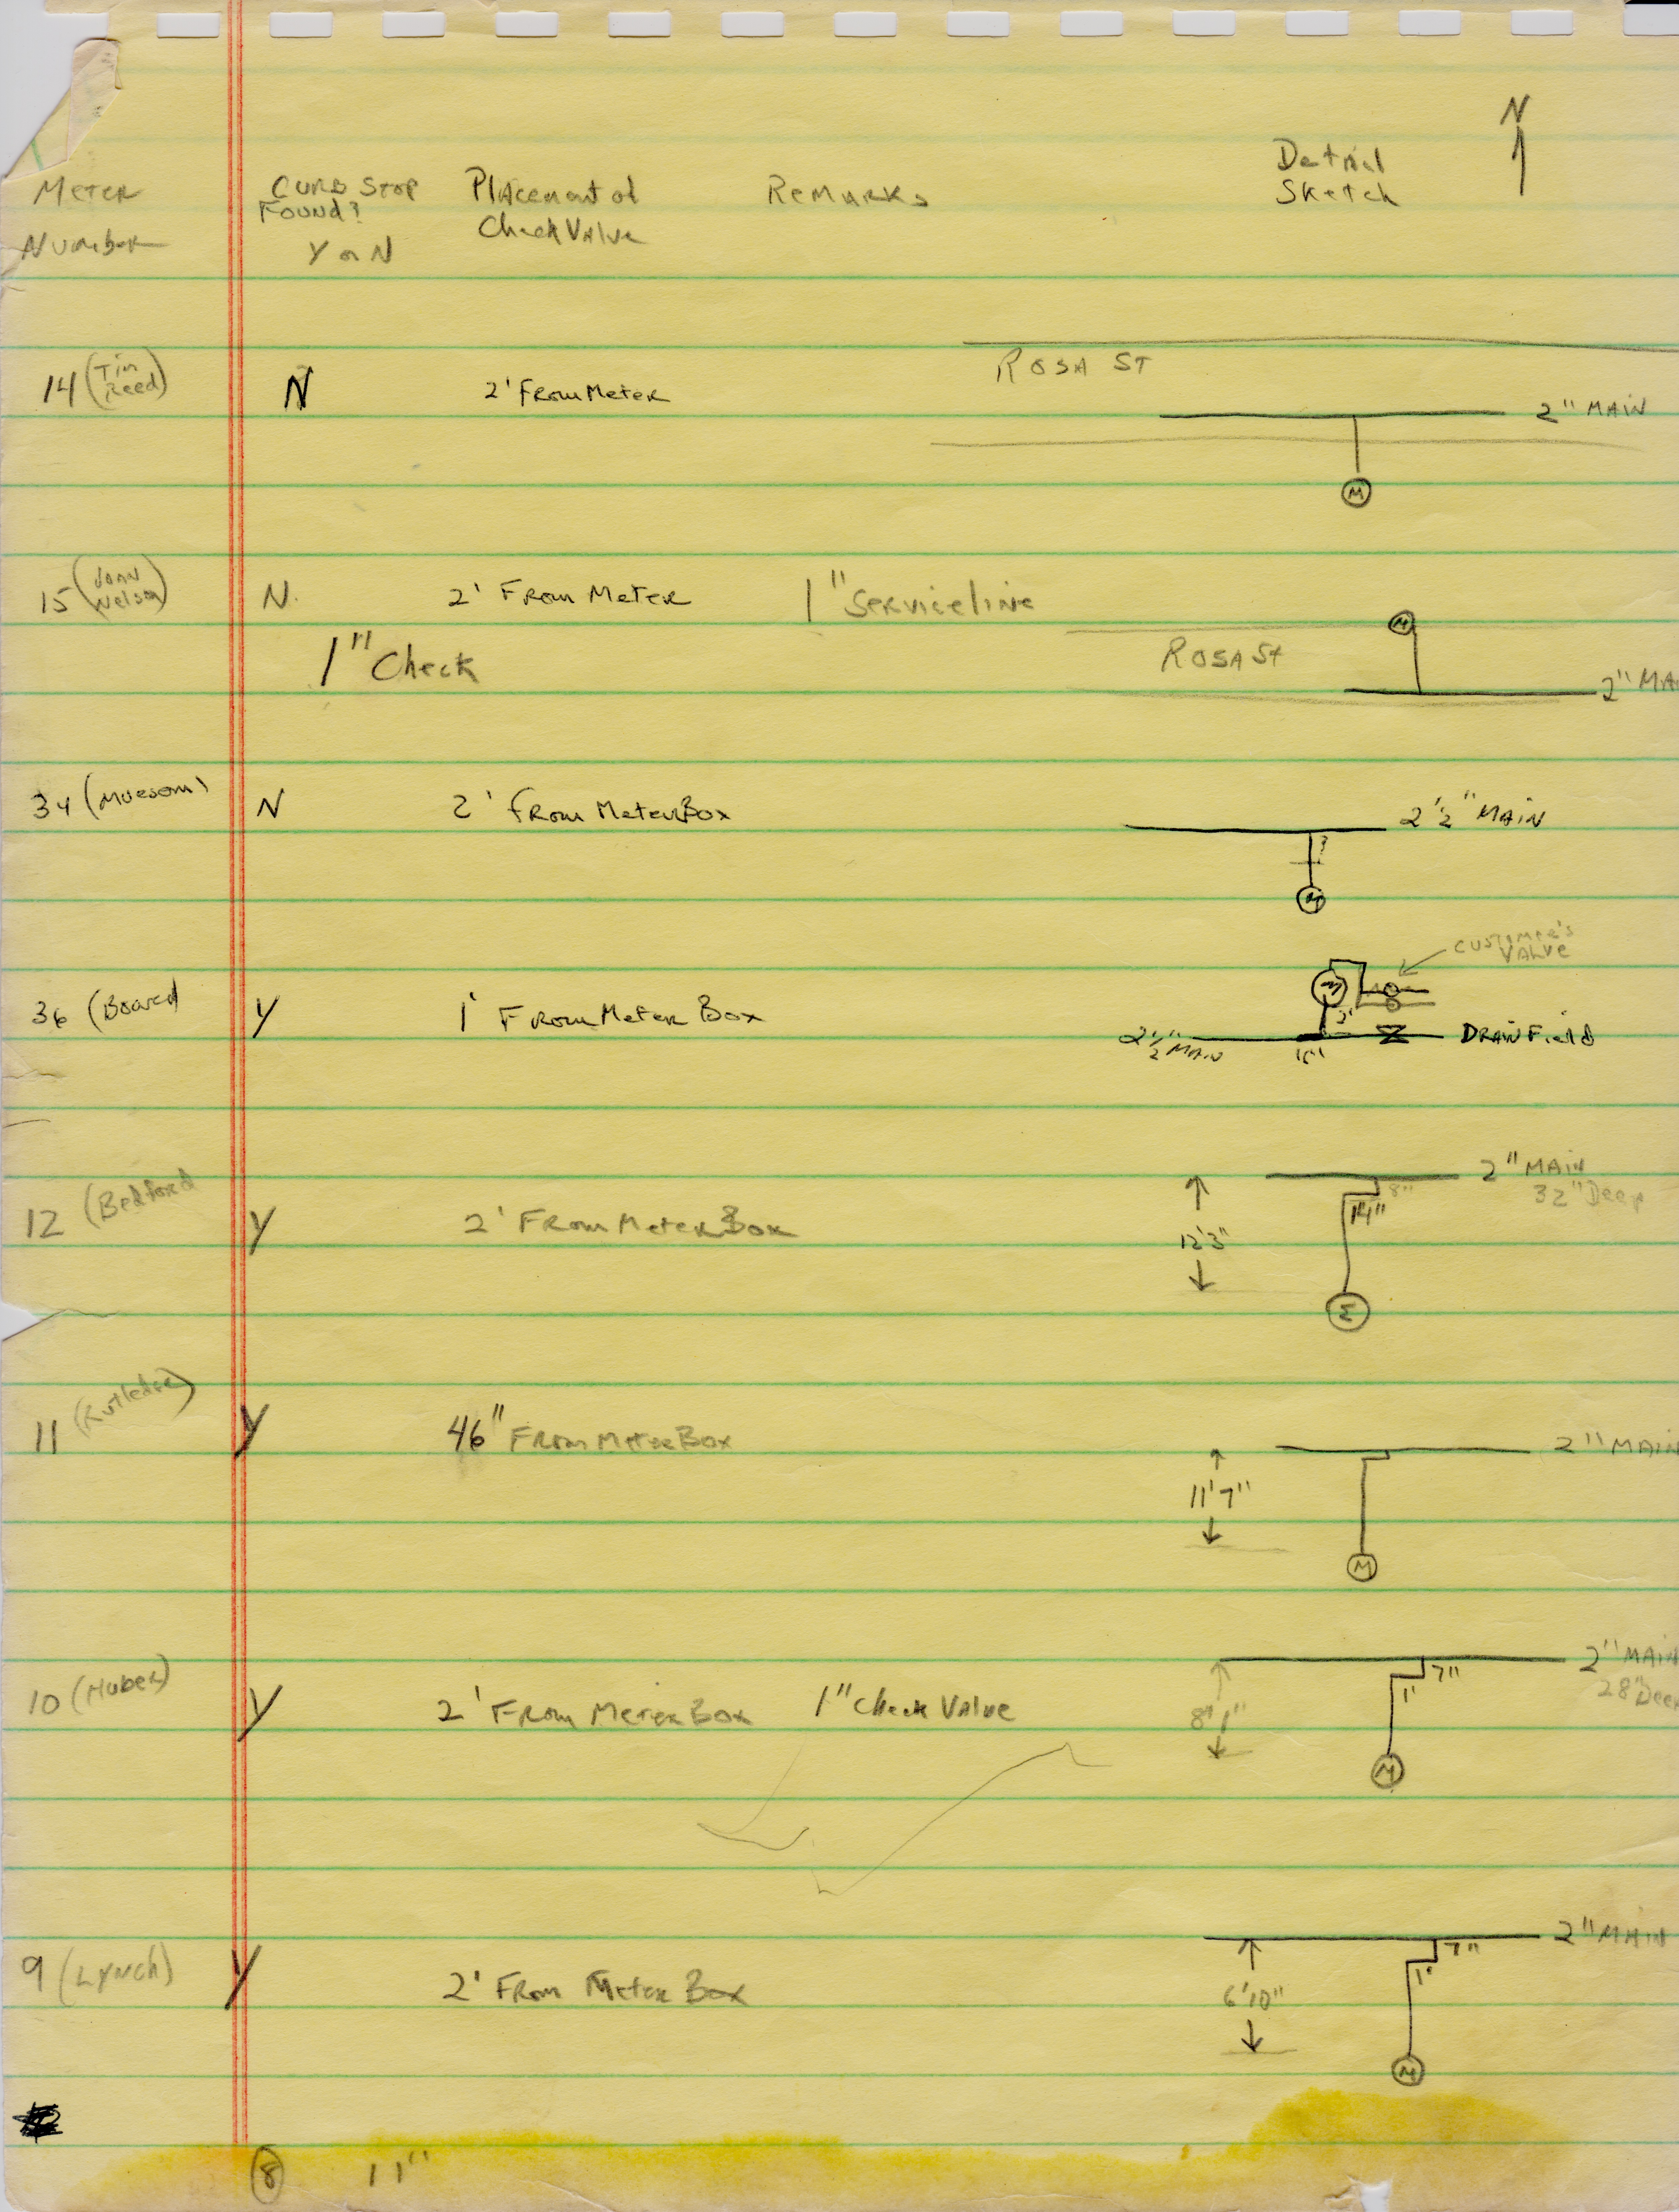 N
Meter
Number
Curb Stop
Found?
Y or N
Placement of
Check Valve
Remarks
Detail
Sketch
14 (Tim
Reed)
N
2' From Meter
Rosa St
2" Main
M
15 (Joan
Nelson)
N.
2' From Meter
1" Serviceline
1" Check
M
Rosa St
2" Ma
34 (Muesom)
N
2' From Meter Box
2 1/2" Main
?
M
36 (Board
Y
1' From Meter Box
Customer's
Valve
M
2 1/2" Main
Drain Field
12 (Bedford
Y
2' From Meter Box
2" Main
32" Deep
8"
14"
12'3"
M
11 (Rutledge)
Y
46" From Meter Box
2" Main
11'7"
M
10 (Huber)
Y
2' From Meter Box
1" Check Valve
2" Main
28" Deep
7"
1'
8'1"
M
9 (Lynch)
Y
2' From Meter Box
2" Main
7"
1'
6'10"
M
8
11"